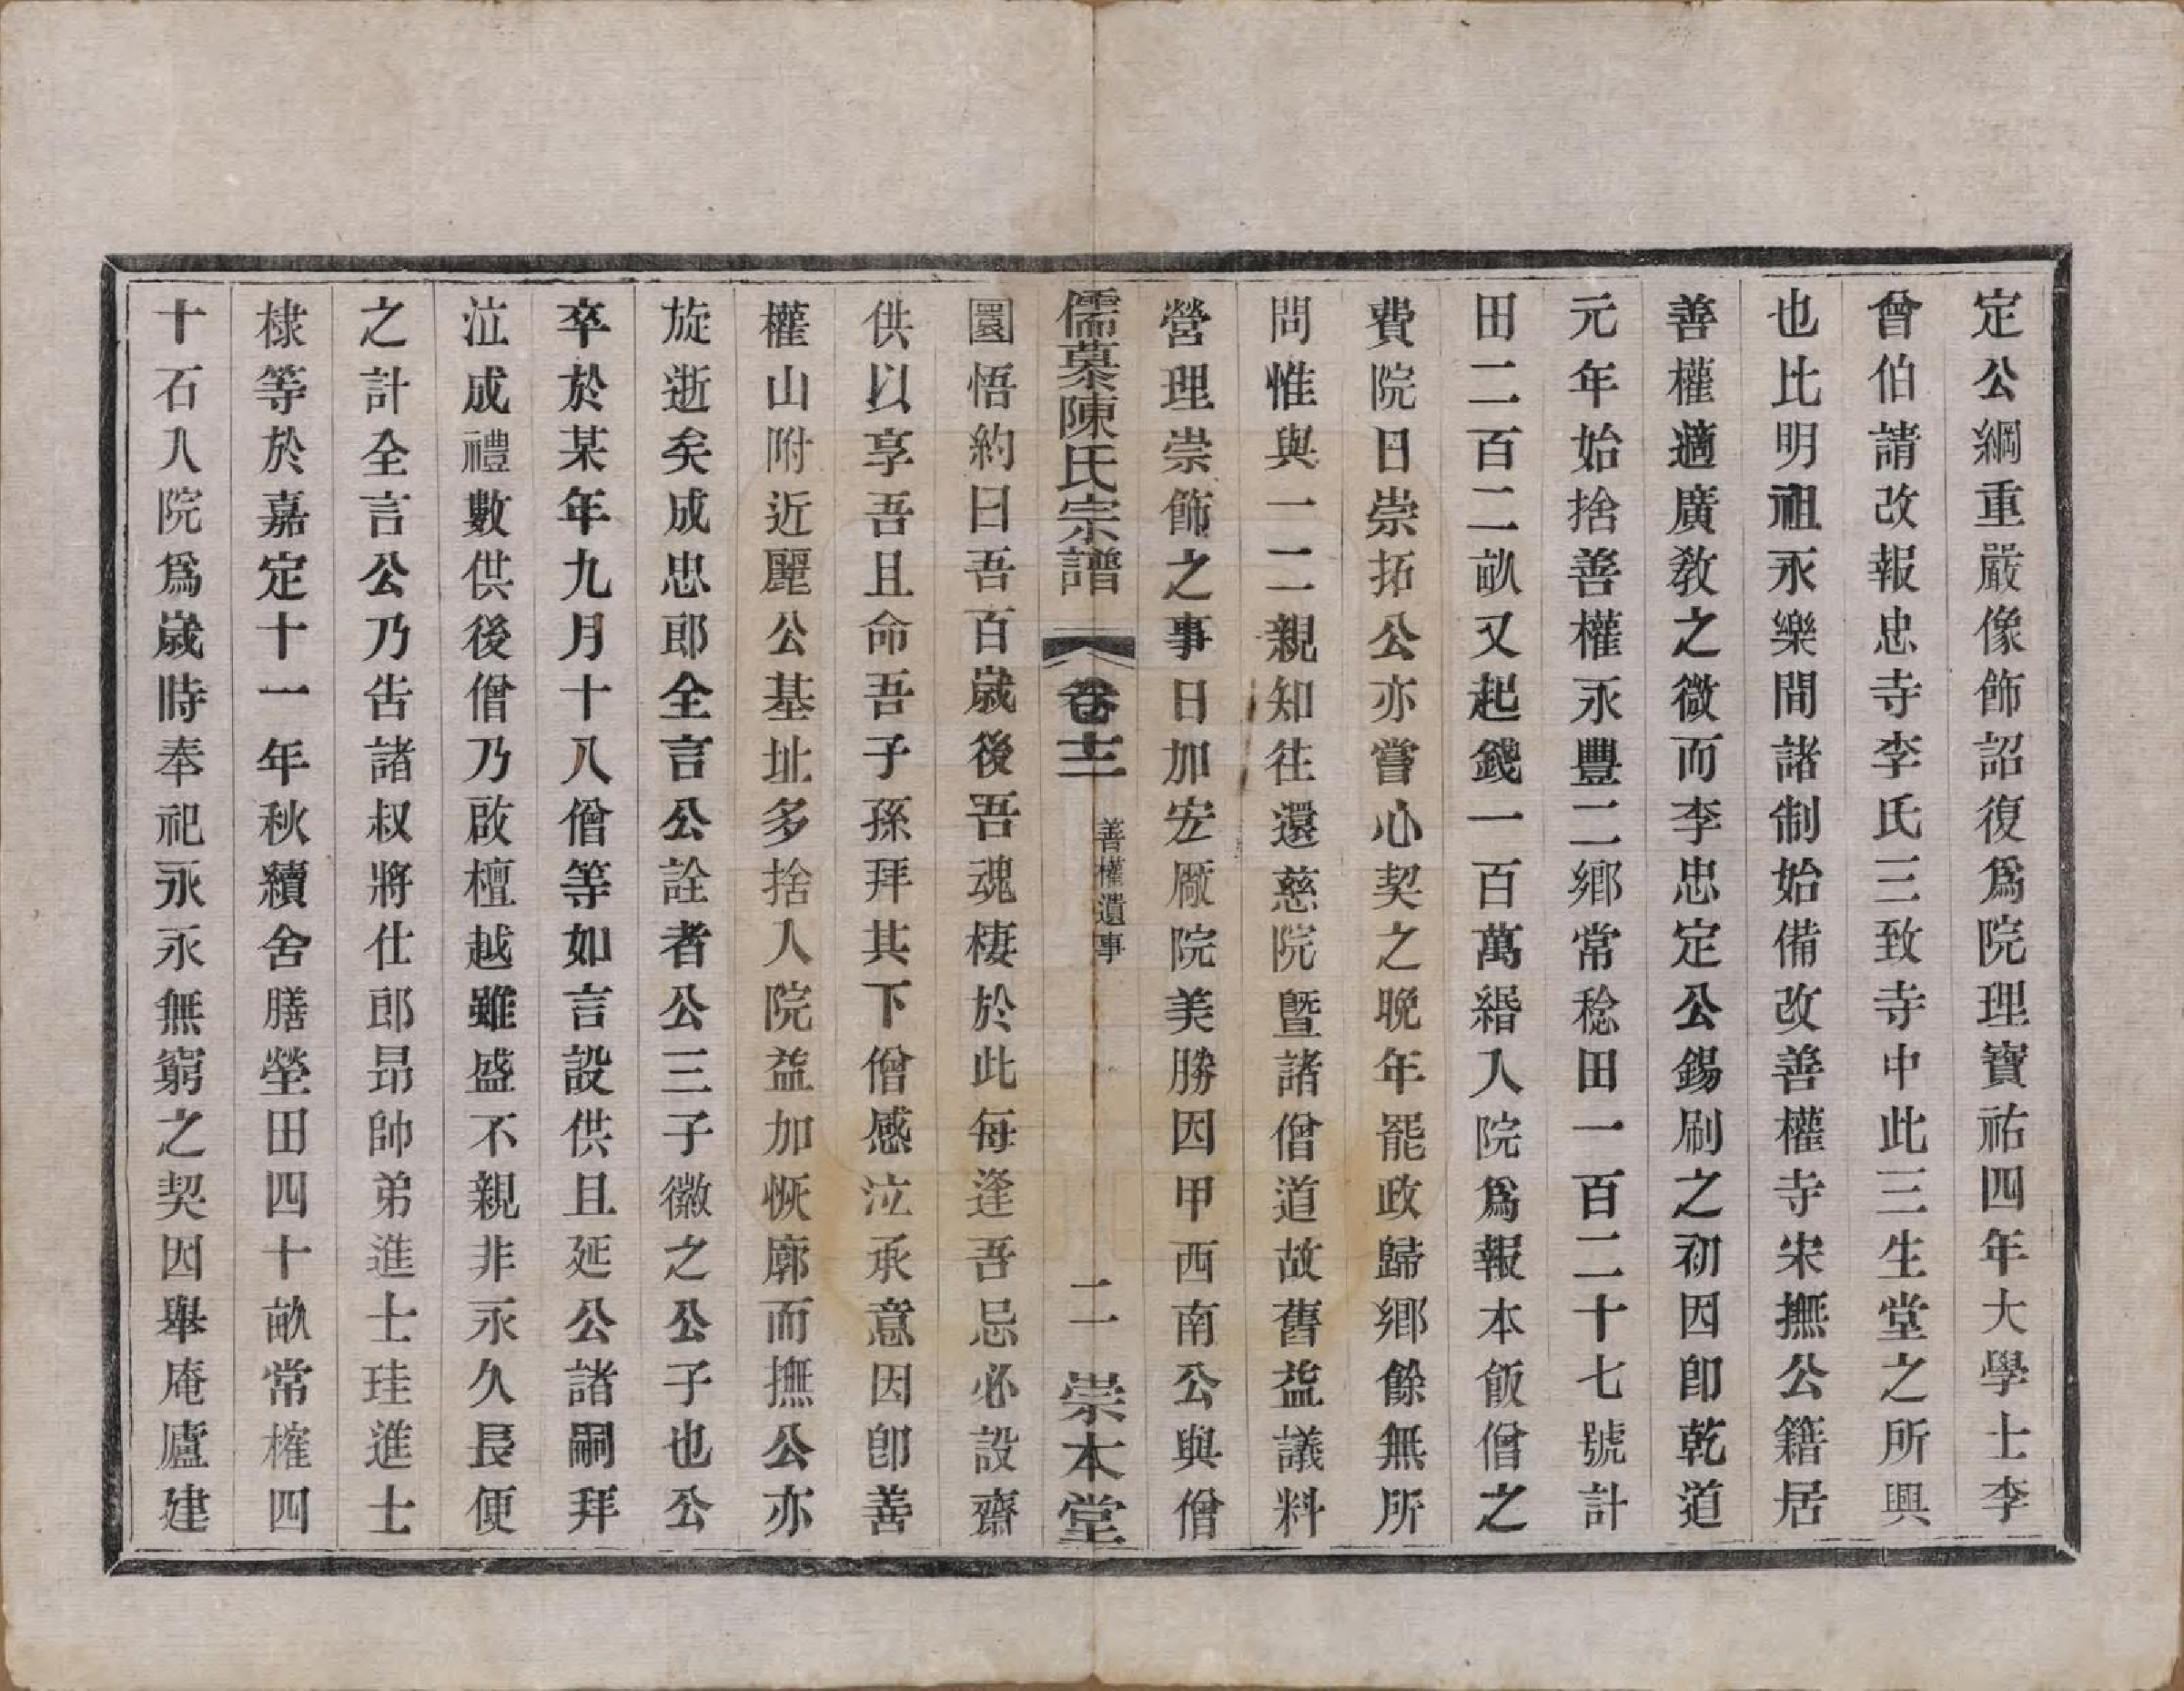 定公綱重嚴像飾詔復爲院理寶祐四年大學士李
曾伯請改報忠寺李氏三致寺中此三生堂之所興
也比明祖永樂間諸制始備改善權寺宋撫公籍居
善權適廣教之微而李忠定公錫刷之初因卽乾道
元年始捨善權永豐二鄉常稔田一百二十七號計
田二百二畝又起錢一百萬緡入院爲報本飯僧之
費院日崇拓公亦嘗心契之晚年罷政歸鄉餘無所
問惟與一二親知往還慈院曁諸僧道故舊益議料
營理崇飾之事日加宏厰院美勝因甲西南公與僧
儒慕陳氏宗譜 卷十二 善權遺事 二 崇本堂
圜悟約曰吾百歲後吾魂棲於此每逢吾忌必設齋
供以享吾且命吾子孫拜其下僧感泣承意因卽善
權山附近麗公基址多捨入院益加恢廓而撫公亦
旋逝矣成忠郎全言公詮者公三子徽之公子也公
卒於某年九月十八僧等如言設供且延公諸嗣拜
泣成禮數供後僧乃啟檀越雖盛不親非永久長便
之計全言公乃告諸叔將仕郎昻帥弟進士珪進士
棣等於嘉定十一年秋續舍膳塋田四十畝常榷四
十石入院爲歲時奉祀永永無窮之契因舉庵廬建